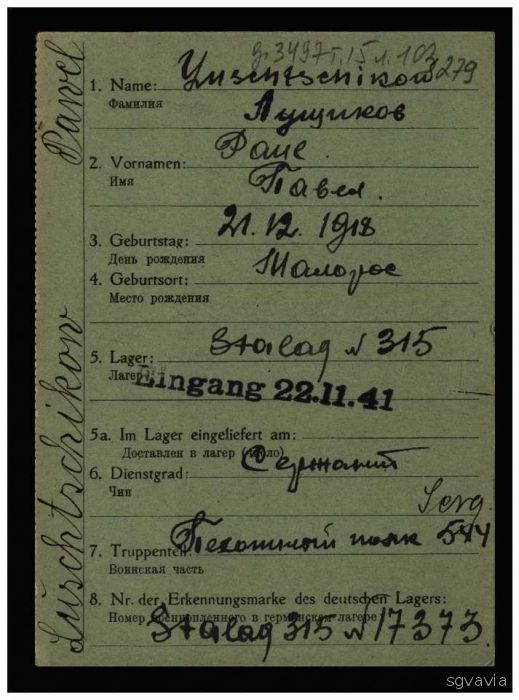 g. 3497 т. 15 л. 103
279
1. Name: Luschtschikow
Фамилия Лущиков
2. Vornamen:
Имя Павел.
3. Geburtstag: 21. 12. 1918
День рождения
4. Geburtsort:
Место рождения
5. Lager: Stalag N 315
Лагерь:
Eingang 22.11.41
5a. Im Lager eingeliefert am:
Доставлен в лагер (число)
6. Dienstgrad: Сержант
Чин
Serg.
7. Truppenteil: Пехотный полк 544
Воинская часть
8. Nr. der Erkennungsmarke des deutschen Lagers:
Номер военнопленного в германском лагере
Stalag 315 N 17373
Luschtschikow Pawel
sgvavia